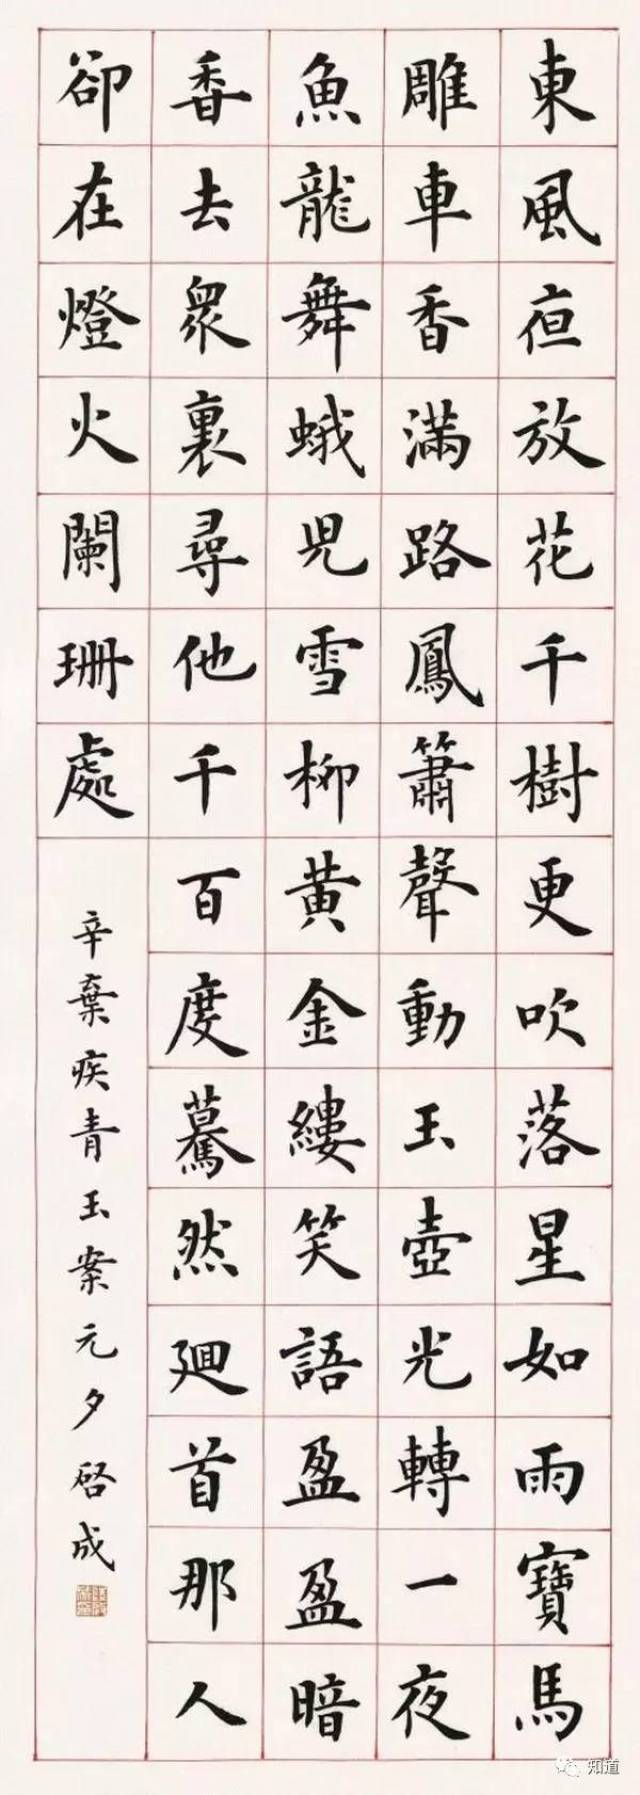 東風夜放花千樹更吹落星如雨寶馬
雕車香滿路鳳簫聲動玉壺光轉一夜
魚龍舞蛾兒雪柳黃金縷笑語盈盈暗
香去衆裏尋他千百度驀然廻首那人
卻在燈火闌珊處
辛棄疾青玉案元夕啓成
知道